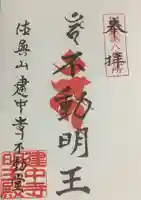 奉拝
不動明王
徳興山 建中寺不動堂
建中寺